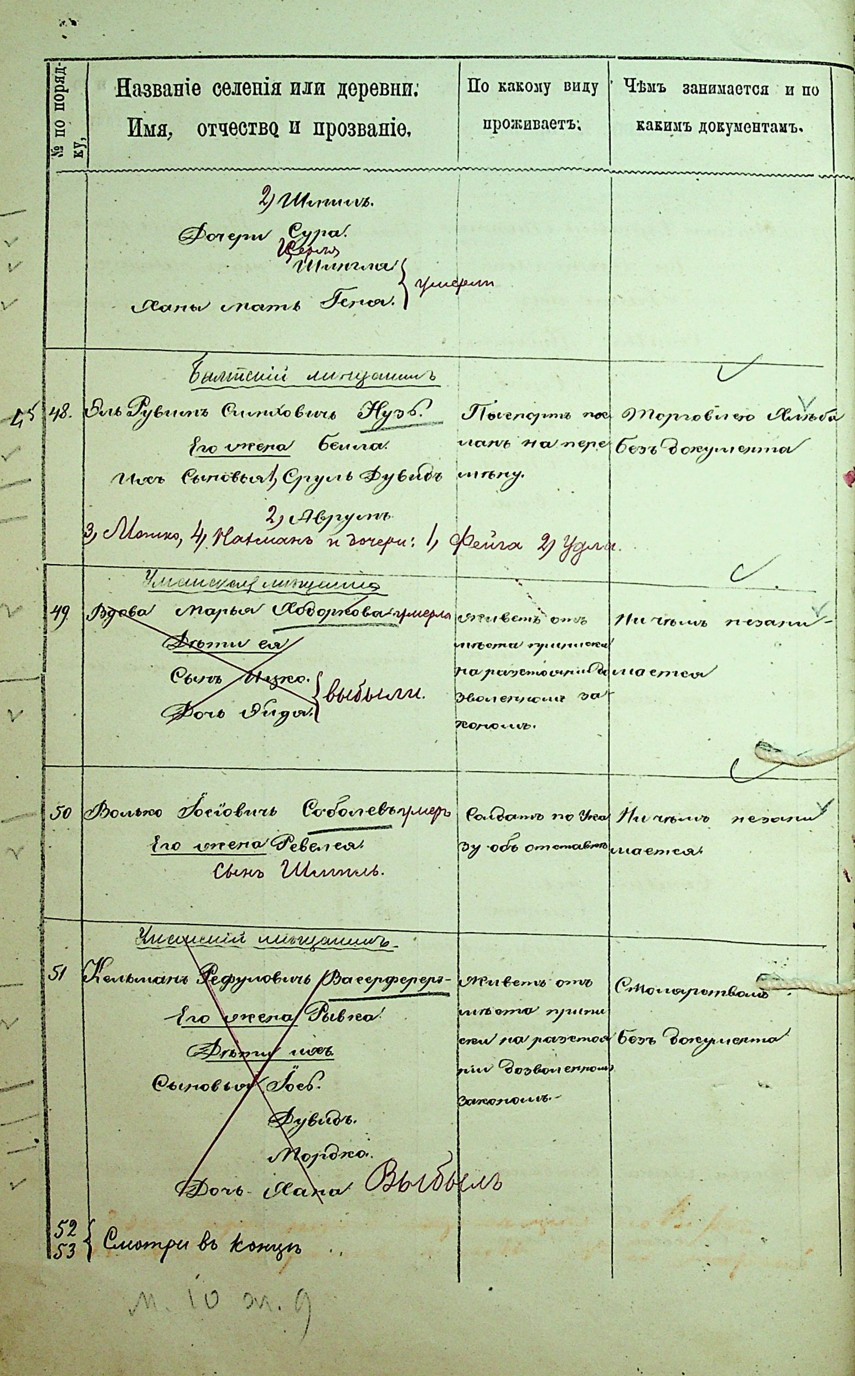 № по поряд-
ку,
Названіе селенія или деревни.
Имя, отчество и прозваніе.
По какому виду
проживаетъ.
Чѣмъ занимается и по
какимъ документамъ.
2, Шмилъ.
Дочери Сура.
Церля
Шлигля
умерли
Ханы мать Геня.
Балтскій мѣщанинъ
45
48.
Эль Рувинъ Симховичь Нузъ.
Его жена Бейла.
Ихъ Сыновья 1, Сруль Дувидъ
2, Аврумъ
3, Мошко, 4, Нахманъ и дочери: 1, Фейга 2, Удля.
Паспортъ пос
ланъ на пере
мѣну.
Торговлею Хлѣба
безъ документа
Уманская мѣщанка
49
Вдова Марья Ходоркова умерла
Дѣти ея
Сынъ Ицко.
Дочь Эйдя.
выбыли.
Живетъ отъ
мѣста приписки
на разстояніи до
зволенномъ за
кономъ.
Ничѣмъ незани-
мается
50
Волько Іосіовичь Соболевъ умеръ
Его жена Ревелея.
сынъ Шмиль.
Солдатъ по Ука
зу объ отставкѣ
Ничѣмъ незани
мается.
Уманскій мѣщанинъ.
51
Кельманъ Рефуловичь Васерферер-
Его жена Рывка.
Дѣти ихъ
Сыновья Іос.
Дувидъ.
Мордко.
Дочь Хана
Выбылъ
Живетъ отъ
мѣста припи
ски на разстоя
ніи дозволенномъ
закономъ.
Столярствомъ
безъ документа
52
53
Смотри въ концѣ
м. 10 ж. 9